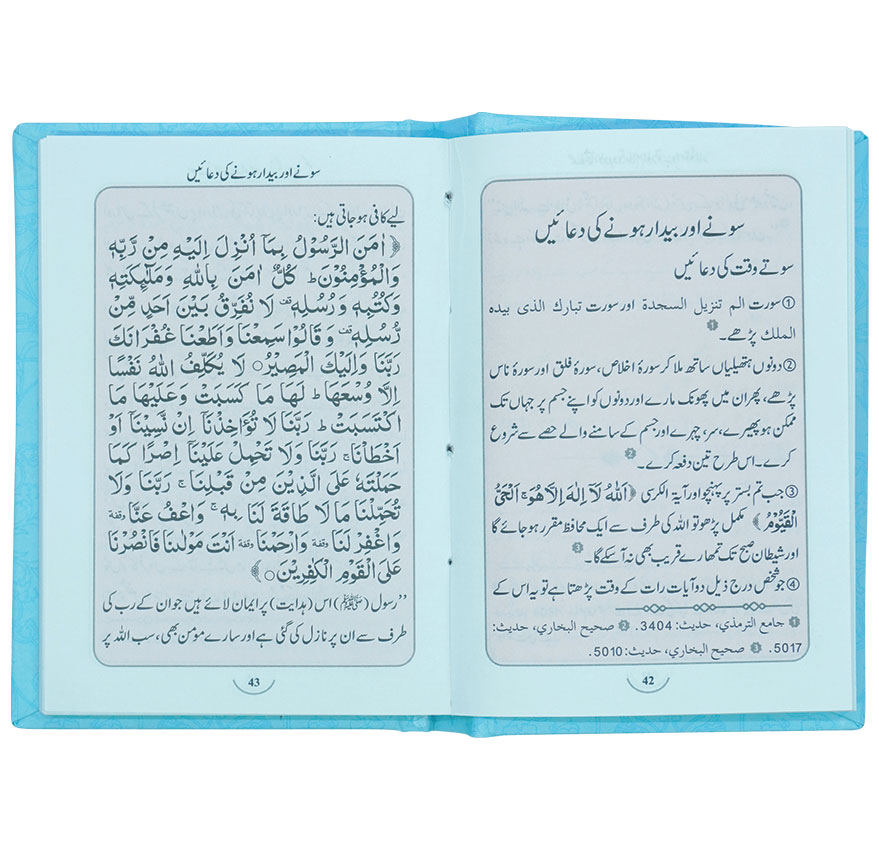 سونے اور بیدار ہونے کی دعائیں
سوتے وقت کی دعائیں
①سورت الم تنزیل السجدة اور سورت تبارك الذی بیده
الملك پڑھے۔❶
②دونوں ہتھیلیاں ساتھ ملا کر سورۂ اخلاص، سورۂ فلق اور سورۂ ناس
پڑھے، پھر ان میں پھونک مارے اور دونوں کو اپنے جسم پر جہاں تک
ممکن ہو پھیرے، سر، چہرے اور جسم کے سامنے والے حصے سے شروع
کرے۔ اس طرح تین دفعہ کرے۔❷
③جب تم بستر پر پہنچو اور آیۃ الکرسی ﴿اَللّٰهُ لَآ اِلٰهَ اِلَّا هُوَ ۚ اَلْحَیُّ
الْقَیُّوْمُ ﴾ مکمل پڑھو تو اللہ کی طرف سے ایک محافظ مقرر ہو جائے گا
اور شیطان صبح تک تمھارے قریب بھی نہ آ سکے گا۔❸
④جو شخص درج ذیل دو آیات رات کے وقت پڑھتا ہے تو یہ اس کے
❶ جامع الترمذي، حديث: 3404. ❷ صحيح البخاري، حديث:
5017. ❸ صحيح البخاري، حديث: 5010.
42
سونے اور بیدار ہونے کی دعائیں
لیے کافی ہو جاتی ہیں:
﴿ اٰمَنَ الرَّسُوْلُ بِمَاۤ اُنْزِلَ اِلَیْهِ مِنْ رَّبِّهٖ
وَالْمُؤْمِنُوْنَ ؕ كُلٌّ اٰمَنَ بِاللّٰهِ وَمَلٰٓىِٕكَتِهٖ
وَكُتُبِهٖ وَرُسُلِهٖ ۫ لَا نُفَرِّقُ بَیْنَ اَحَدٍ مِّنْ
رُّسُلِهٖ ۫ وَ قَالُوْا سَمِعْنَا وَاَطَعْنَا غُفْرَانَكَ
رَبَّنَا وَاِلَیْكَ الْمَصِیْرُ ○ لَا یُكَلِّفُ اللّٰهُ نَفْسًا
اِلَّا وُسْعَهَا ؕ لَهَا مَا كَسَبَتْ وَعَلَیْهَا مَا
اكْتَسَبَتْ ؕ رَبَّنَا لَا تُؤَاخِذْنَاۤ اِنْ نَّسِیْنَاۤ اَوْ
اَخْطَاْنَا ۚ رَبَّنَا وَلَا تَحْمِلْ عَلَیْنَاۤ اِصْرًا كَمَا
حَمَلْتَهٗ عَلَی الَّذِیْنَ مِنْ قَبْلِنَا ۚ رَبَّنَا وَلَا
تُحَمِّلْنَا مَا لَا طَاقَةَ لَنَا بِهٖ ۚ وَاعْفُ عَنَّا وقفة
وَاغْفِرْ لَنَا وقفة وَارْحَمْنَا وقفة اَنْتَ مَوْلٰىنَا فَانْصُرْنَا
عَلَی الْقَوْمِ الْكٰفِرِیْنَ ○ ﴾
”رسول (ﷺ) اس (ہدایت) پر ایمان لائے ہیں جو ان کے رب کی
طرف سے ان پر نازل کی گئی ہے اور سارے مؤمن بھی، سب اللہ پر
43